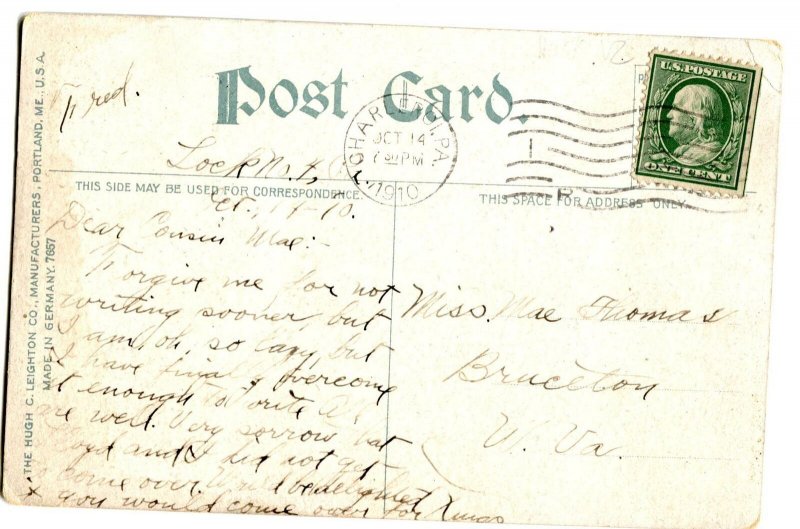 Post Card.
Fred.
U.S. POSTAGE
ONE CENT
CHARLEROI, PA
OCT 14
7 30 PM
1910
Lock No. 4,
THIS SIDE MAY BE USED FOR CORRESPONDENCE.
THIS SPACE FOR ADDRESS ONLY.
Oct. 14-10.
Dear Cousin Mae:-
Forgive me for not
writing sooner, but
I am, oh, so lazy, but
I have finally overcome
it enough to write. All
are well. Very sorrow that
and I did not get
to come over. Would be delighted
if you would come over for Xmas
Miss. Mae Thomas
Bruceton
W. Va.
THE HUGH C. LEIGHTON CO., MANUFACTURERS, PORTLAND, ME., U.S.A.
MADE IN GERMANY. 7657